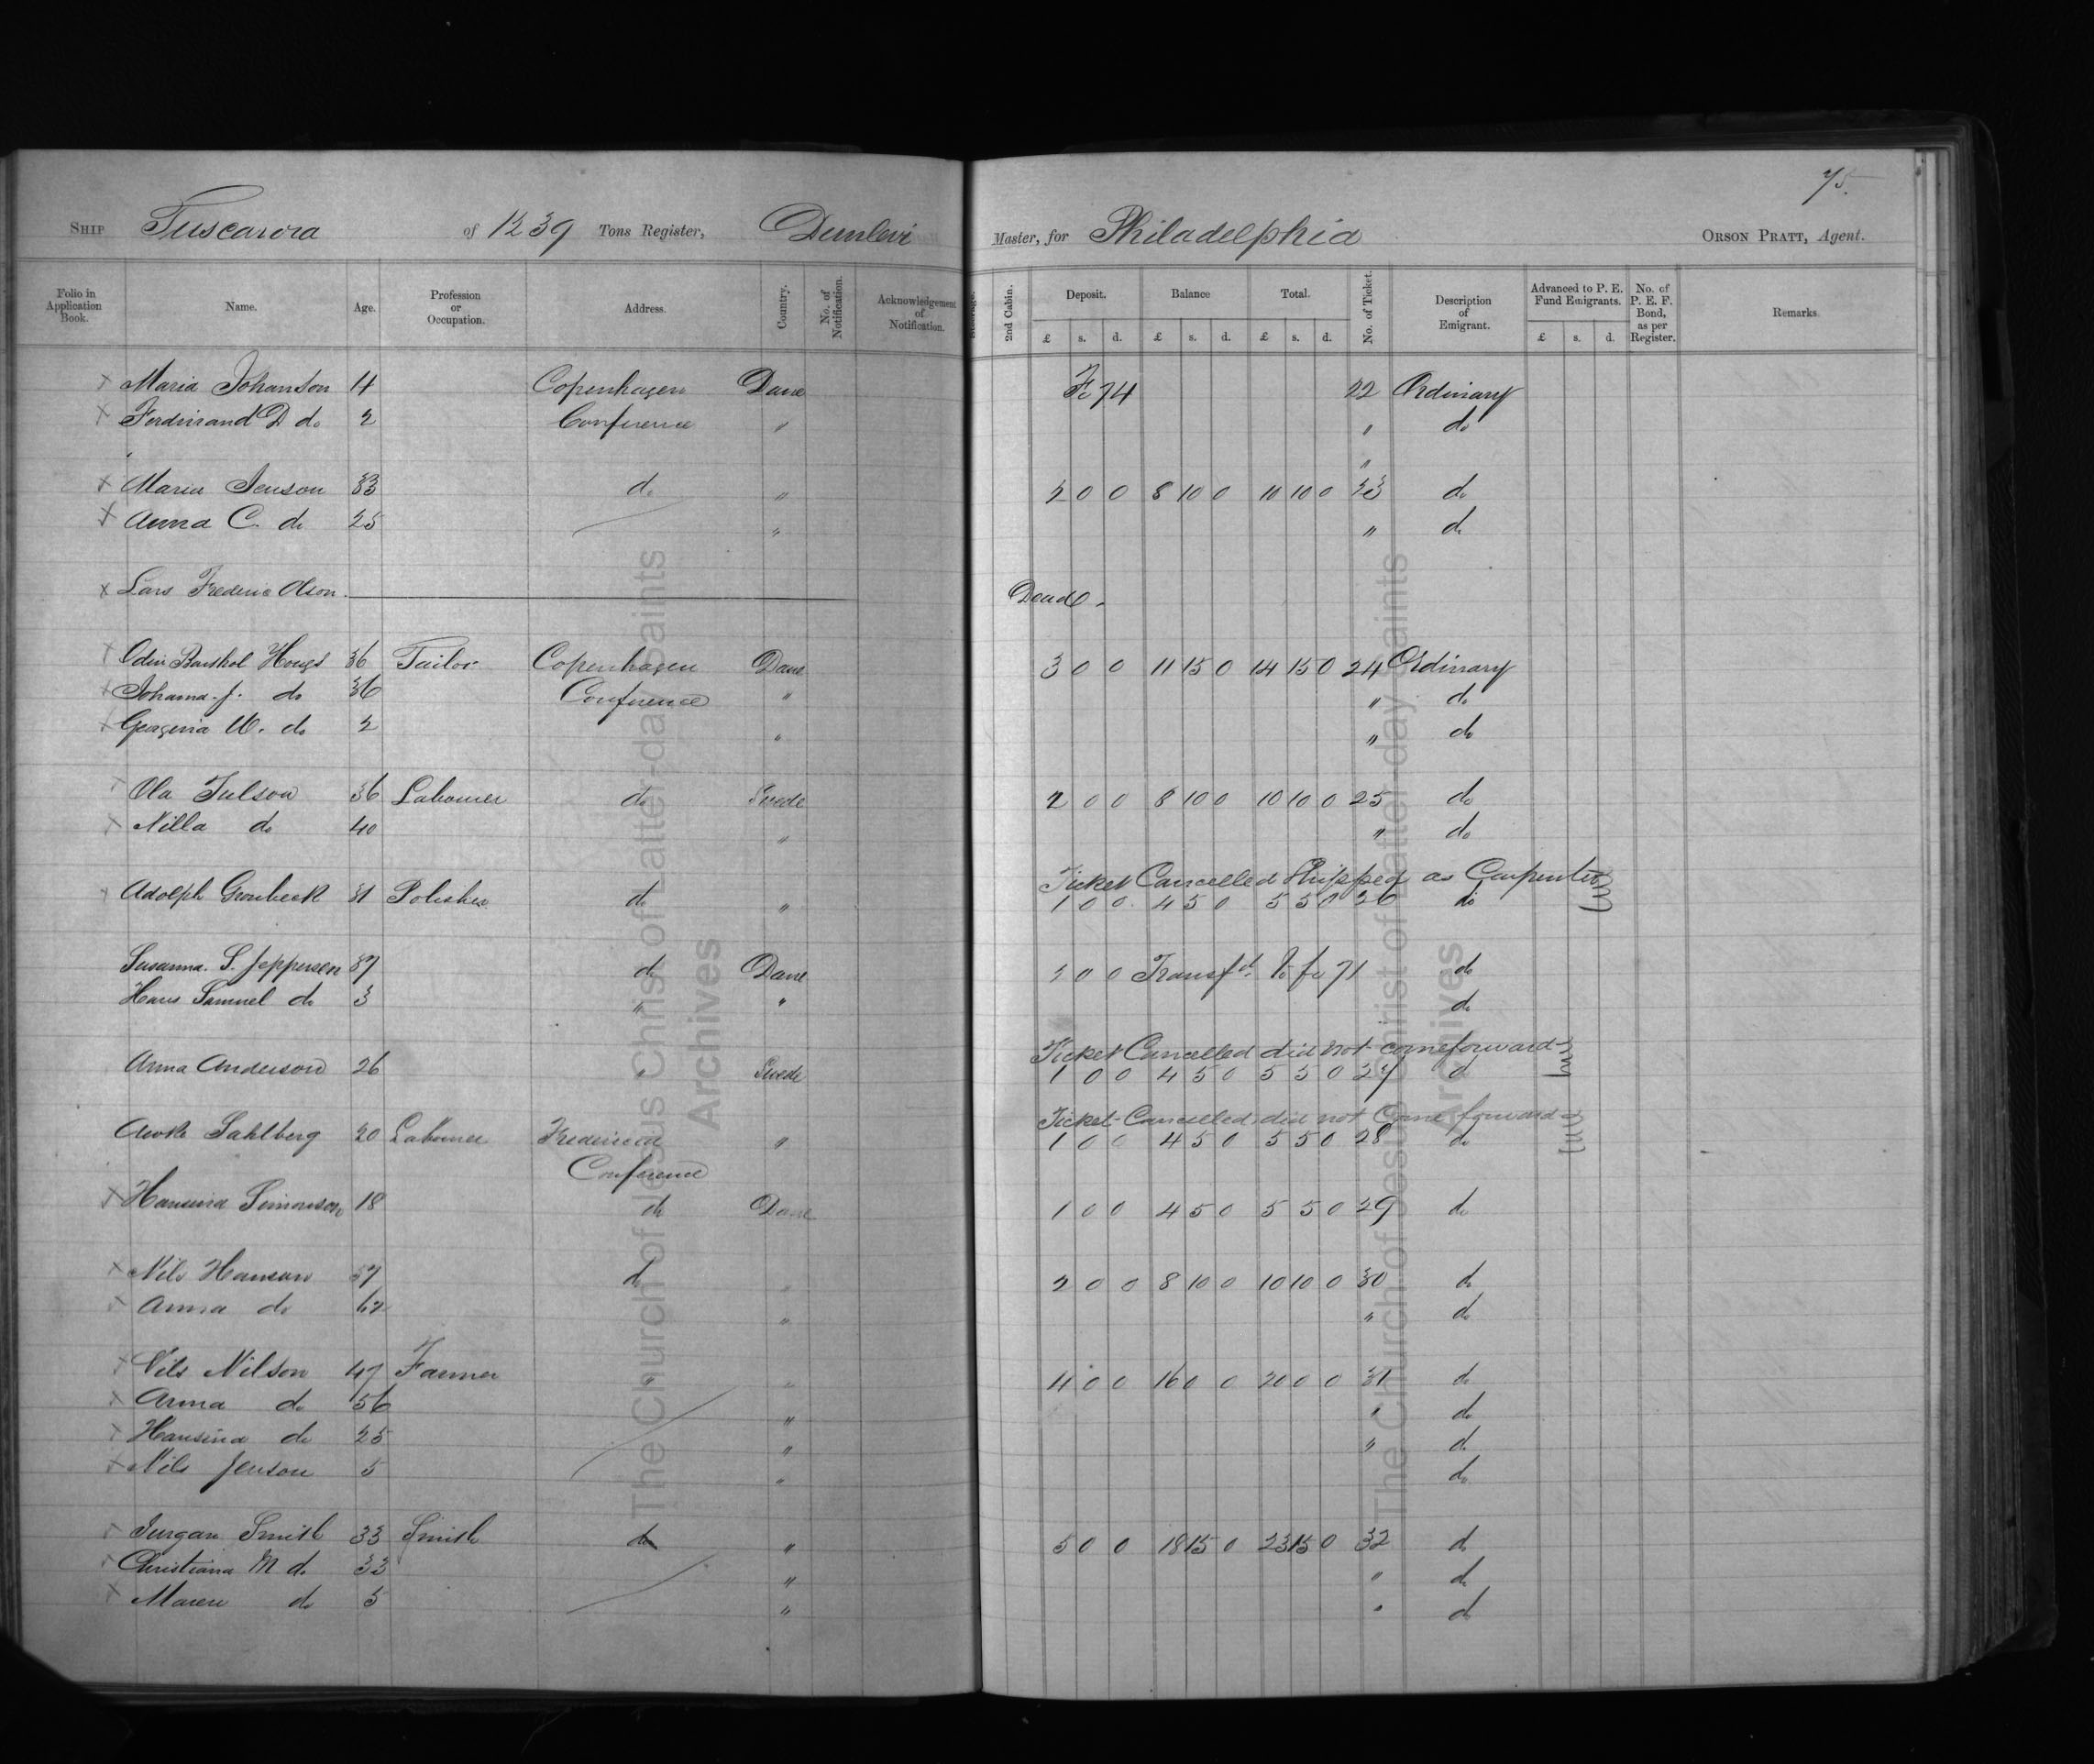 75.
SHIP Tuscarora of 1239 Tons Register, Dunlevi Master, for Philadelphia ORSON PRATT, Agent.
Folio in Application Book. Name. Age. Profession or Occupation. Address. Country. No. of Notification. Acknowledgement of Notification. 2nd Cabin. Deposit. Balance Total. No. of Ticket. Description of Emigrant. Advanced to P. E. Fund Emigrants. No. of P. E. F. Bond, as per Register. Remarks
£ s. d. £ s. d. £ s. d. £ s. d.
x Maria Johanson 4 Copenhagen Dane Fo 74 22 Ordinary
x Ferdinand D do 2 Conference " " do
"
x Maria Jenson 33 do " 2 0 0 8 10 0 10 10 0 23 do
x Anna C. do 25 " " do
x Lars Frederic Olson Dead.
x Odin Hougs 36 Tailor Copenhagen Dane 3 0 0 11 15 0 14 15 0 24 Ordinary
x Johanna J. do 36 Conference " " do
x do 2 " " do
x Ola Tulson 36 Labourer do Swede 2 0 0 8 10 0 10 10 0 25 do
x Nilla do 40 " " do
Ticket Cancelled Shipped as Carpenter
x Adolph Gronbeck 31 Polisher do " 1 0 0 4 5 0 5 5 0 26 do
Susanna. S. Jeppersen 37 do Dane 2 0 0 Transfd to fo 71 do
Hans Samuel do 3 " " do
Ticket Cancelled did not come forward
Anna Anderson 26 " Swede 1 0 0 4 5 0 5 5 0 27 d
Ticket Cancelled did not Come forward
Sahlberg 20 Labourer Fredericia " 1 0 0 4 5 0 5 5 0 28 do
Conference
x Hansina Simonson 18 do Dane 1 0 0 4 5 0 5 5 0 29 do
x Nils Hanson 57 do " 2 0 0 8 10 0 10 10 0 30 do
x Anna do 62 " " do
x Nils Nilson 47 Farmer " " 4 0 0 16 0 0 20 0 0 31 do
x Anna do 56 " " do
x Hansina do 25 " " do
x Nils Jenson 5 " do
x Jurgan Smith 33 Smith do " 5 0 0 18 15 0 23 15 0 32 do
x Christiana M do 33 " " do
x Maren do 5 " " do
The Church of Jesus Christ of Latter-day Saints
Archives
The Church of Jesus Christ of Latter-day Saints
Archives